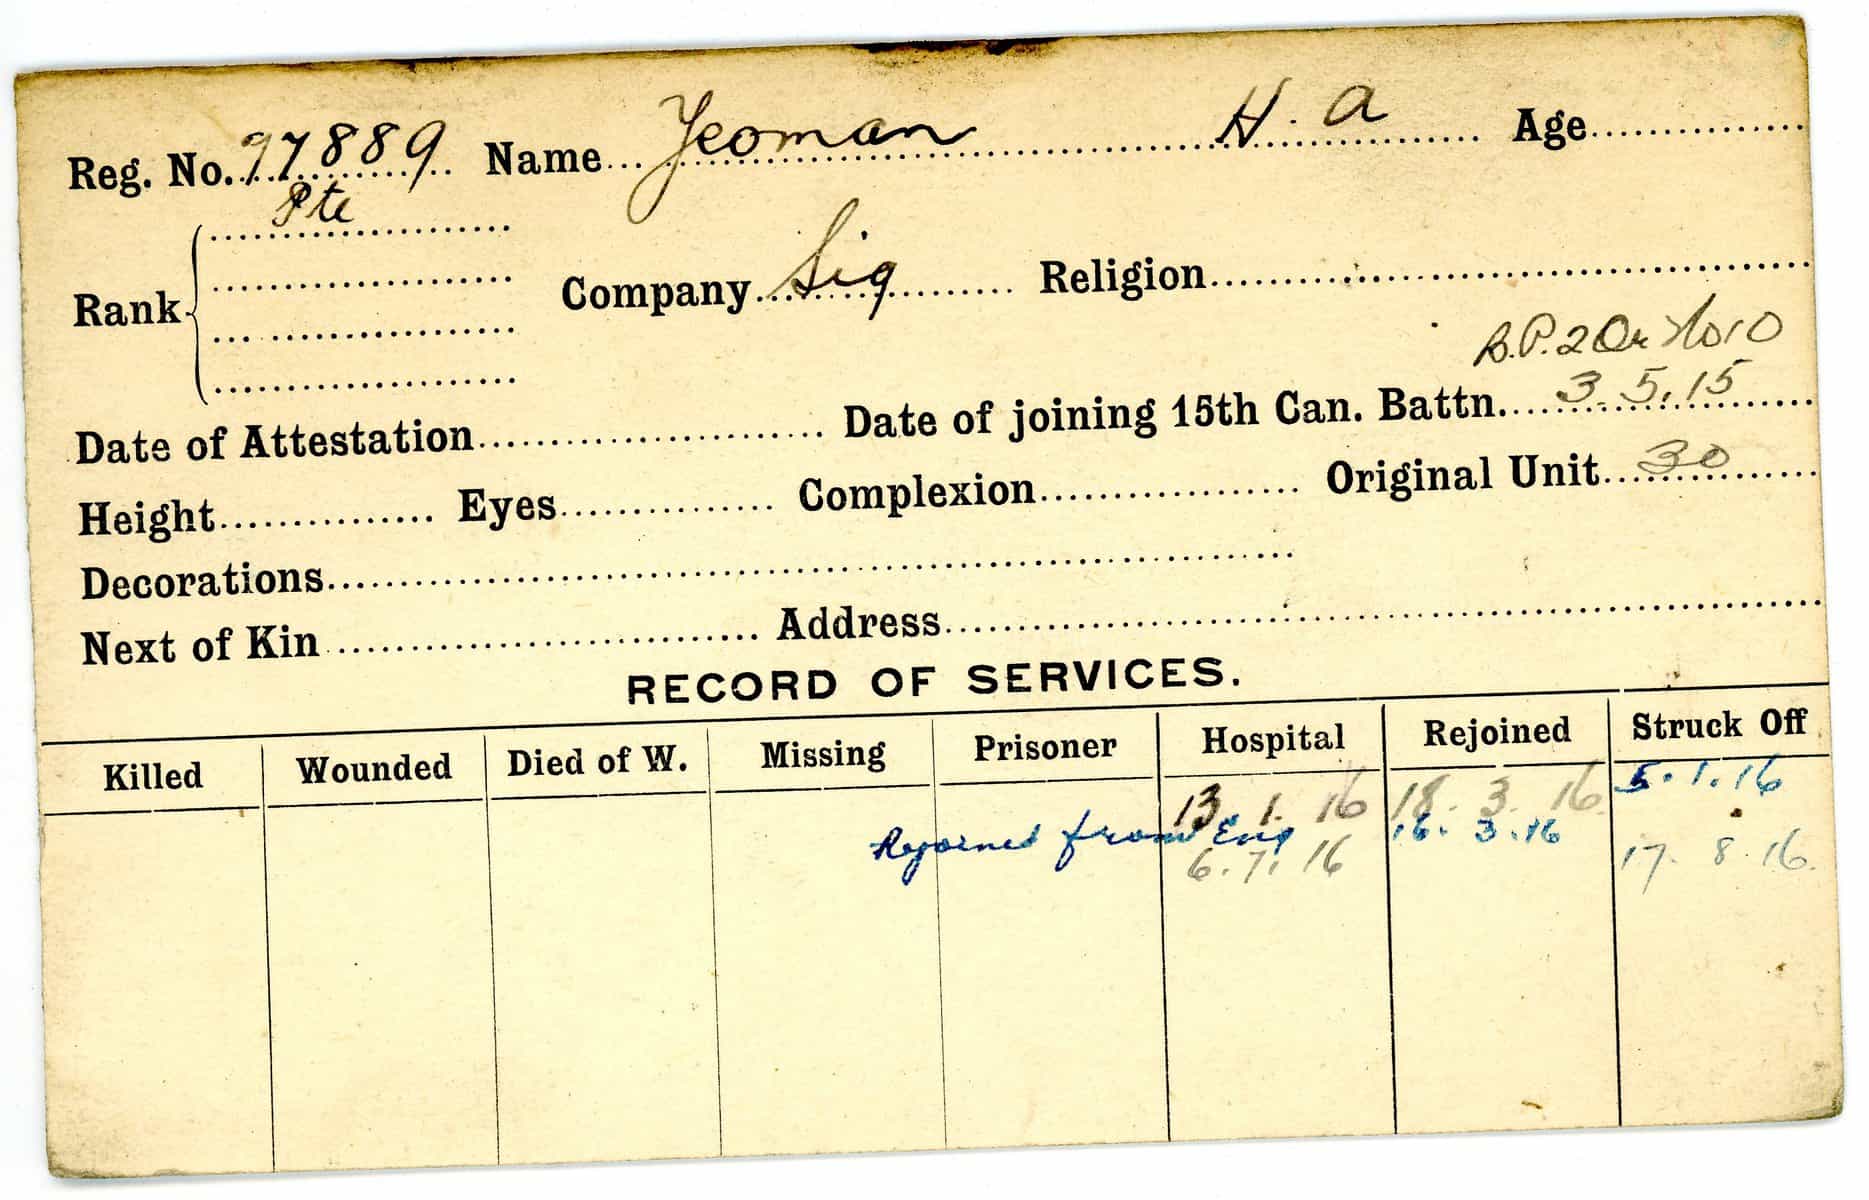 Reg. No. 77889 Name Yeoman H. A Age
Pte
Rank Company Sig Religion
B.P. 2 Or No 10
Date of Attestation Date of joining 15th Can. Battn. 3.5.15
Height Eyes Complexion Original Unit 30
Decorations
Next of Kin Address
RECORD OF SERVICES.
Killed Wounded Died of W. Missing Prisoner Hospital Rejoined Struck Off
13. 1. 16 18. 3. 16 5.1.16
Rejoined from Eng 16. 3.16
6.7.16 17. 8. 16.